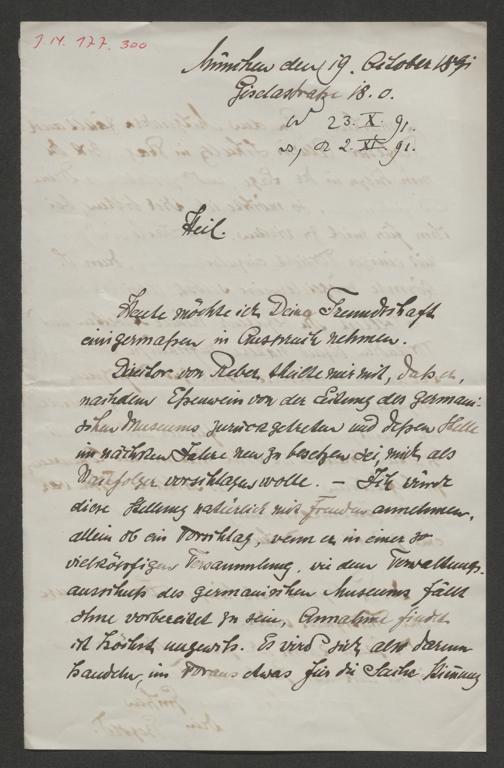 J. N. 177.300
München den 19. October 1891
Giselastraße 18. o.
23. X. 91.
2. XI. 91.
Heil.
Heute möchte ich Deine Freundschaft
einigermaßen in Anspruch nehmen.
Director von Reber theilte mir mit, daß er,
nachdem Eßenwein von der Leitung des germani-
schen Museums zurückgetreten und deßen Stelle
im nächsten Jahre neu zu besetzen sei, mich als
Nachfolger vorschlagen wolle. – Ich würde
diese Stellung natürlich mit Freuden annehmen,
allein ob ein Vorschlag, wenn er in einer so
vielköpfigen Versammlung, wie dem Verwaltungs-
ausschuß des germanischen Museums fällt
ohne vorbereitet zu sein, Annahme findet
ist höchst ungewiß. Es wird sich also darum
handeln, im Voraus etwas für die Sache Stimmung